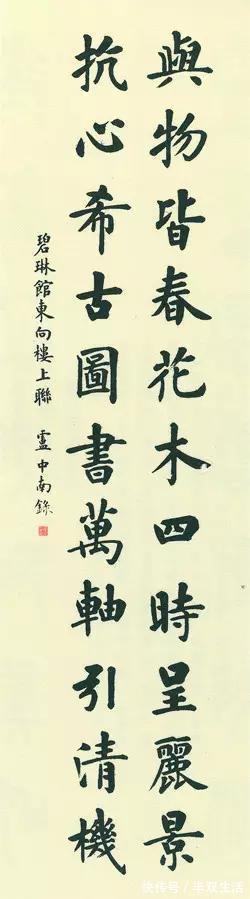 與物皆春花木四時呈麗景
抗心希古圖書萬軸引清機
碧琳館東向樓上聯 盧中南錄
快传号 / 半双生活